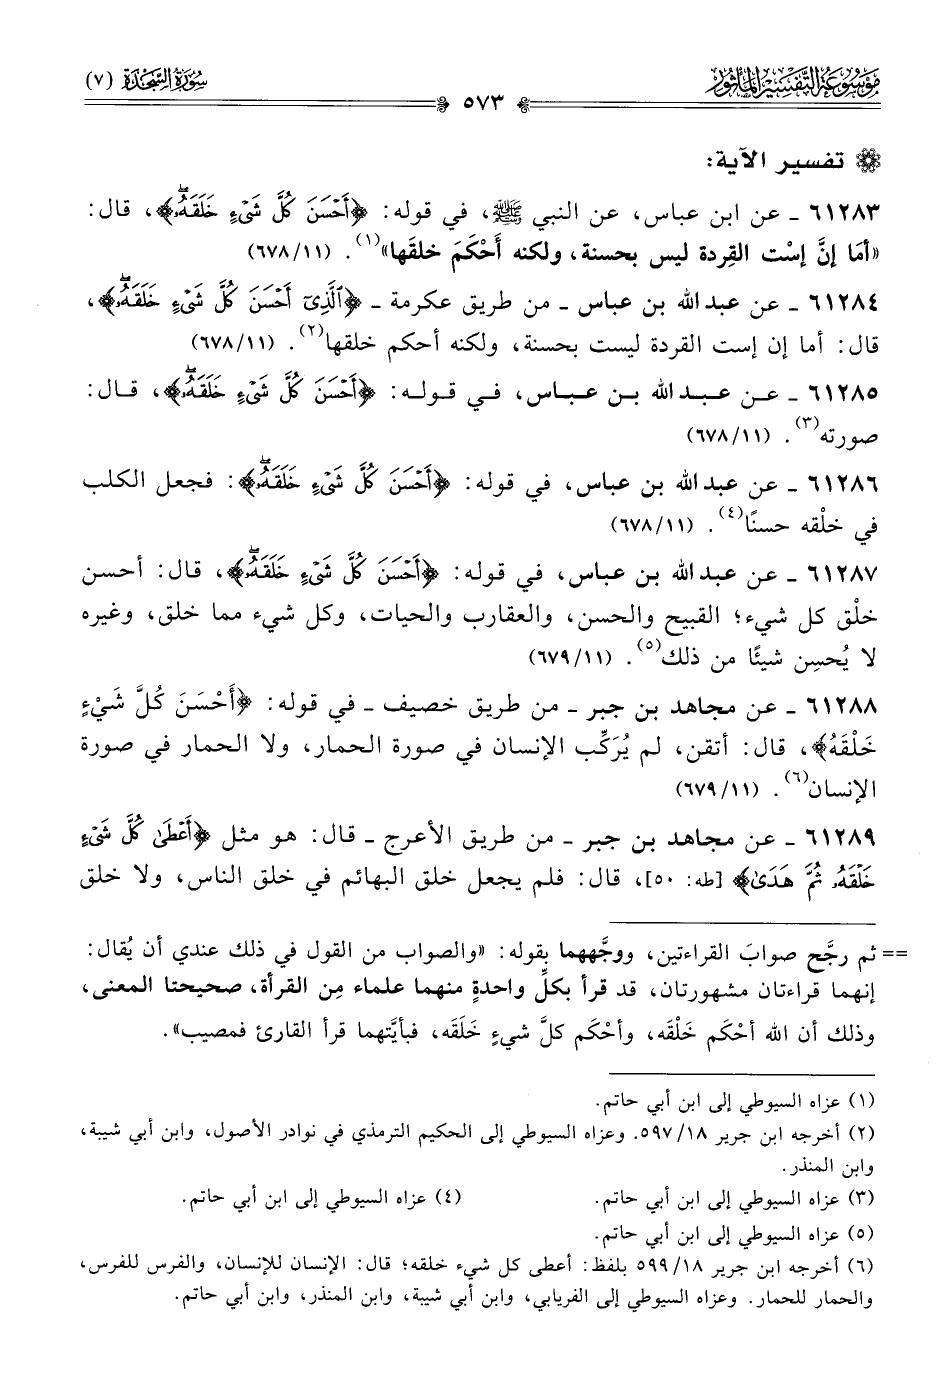 موسوعة التفسير المأثور
سورة السجدة (٧)
٥٧٣
تفسير الآية:
٦١٢٨٣ ـ عن ابن عباس، عن النبي ﷺ، في قوله: ﴿أَحْسَنَ كُلَّ شَىْءٍ خَلَقَهُۥۖ﴾، قال:
«أمَا إنَّ إسْت القِردة ليس بحسنة، ولكنه أَحْكَمَ خلقَها»(١). (٦٧٨/١١)
٦١٢٨٤ ـ عن عبد الله بن عباس ـ من طريق عكرمة ـ ﴿ٱلَّذِىٓ أَحْسَنَ كُلَّ شَىْءٍ خَلَقَهُۥۖ﴾،
قال: أما إن إست القردة ليست بحسنة، ولكنه أحكم خلقها(٢). (٦٧٨/١١)
٦١٢٨٥ ـ عن عبد الله بن عباس، في قوله: ﴿أَحْسَنَ كُلَّ شَىْءٍ خَلَقَهُۥۖ﴾، قال:
صورته(٣). (٦٧٨/١١)
٦١٢٨٦ ـ عن عبد الله بن عباس، في قوله: ﴿أَحْسَنَ كُلَّ شَىْءٍ خَلَقَهُۥۖ﴾: فجعل الكلب
في خلْقه حسنًا(٤). (٦٧٨/١١)
٦١٢٨٧ ـ عن عبد الله بن عباس، في قوله: ﴿أَحْسَنَ كُلَّ شَىْءٍ خَلَقَهُۥۖ﴾، قال: أحسن
خلْق كل شيء؛ القبيح والحسن، والعقارب والحيات، وكل شيء مما خلق، وغيره
لا يُحسِن شيئًا من ذلك(٥). (٦٧٩/١١)
٦١٢٨٨ ـ عن مجاهد بن جبر ـ من طريق خصيف ـ في قوله: ﴿أَحْسَنَ كُلَّ شَيْءٍ
خَلْقَهُ﴾، قال: أتقن، لم يُرَكِّب الإنسان في صورة الحمار، ولا الحمار في صورة
الإنسان(٦). (٦٧٩/١١)
٦١٢٨٩ ـ عن مجاهد بن جبر ـ من طريق الأعرج ـ قال: هو مثل ﴿أَعْطَىٰ كُلَّ شَىْءٍ
خَلْقَهُۥ ثُمَّ هَدَىٰ﴾ [طه: ٥٠]، قال: فلم يجعل خلق البهائم في خلق الناس، ولا خلق
== ثم رجَّح صوابَ القراءتين، ووجَّههما بقوله: «والصواب من القول في ذلك عندي أن يُقال:
إنهما قراءتان مشهورتان، قد قرأ بكلِّ واحدةٍ منهما علماء مِن القرأة، صحيحتا المعنى،
وذلك أن الله أحْكم خَلْقه، وأحْكم كلَّ شيءٍ خَلَقَه، فبأيَّتهما قرأ القارئ فمصيب».
(١) عزاه السيوطي إلى ابن أبي حاتم.
(٢) أخرجه ابن جرير ١٨/ ٥٩٧. وعزاه السيوطي إلى الحكيم الترمذي في نوادر الأصول، وابن أبي شيبة،
وابن المنذر.
(٣) عزاه السيوطي إلى ابن أبي حاتم. (٤) عزاه السيوطي إلى ابن أبي حاتم.
(٥) عزاه السيوطي إلى ابن أبي حاتم.
(٦) أخرجه ابن جرير ١٨/ ٥٩٩ بلفظ: أعطى كل شيء خلقه؛ قال: الإنسان للإنسان، والفرس للفرس،
والحمار للحمار. وعزاه السيوطي إلى الفريابي، وابن أبي شيبة، وابن المنذر، وابن أبي حاتم.